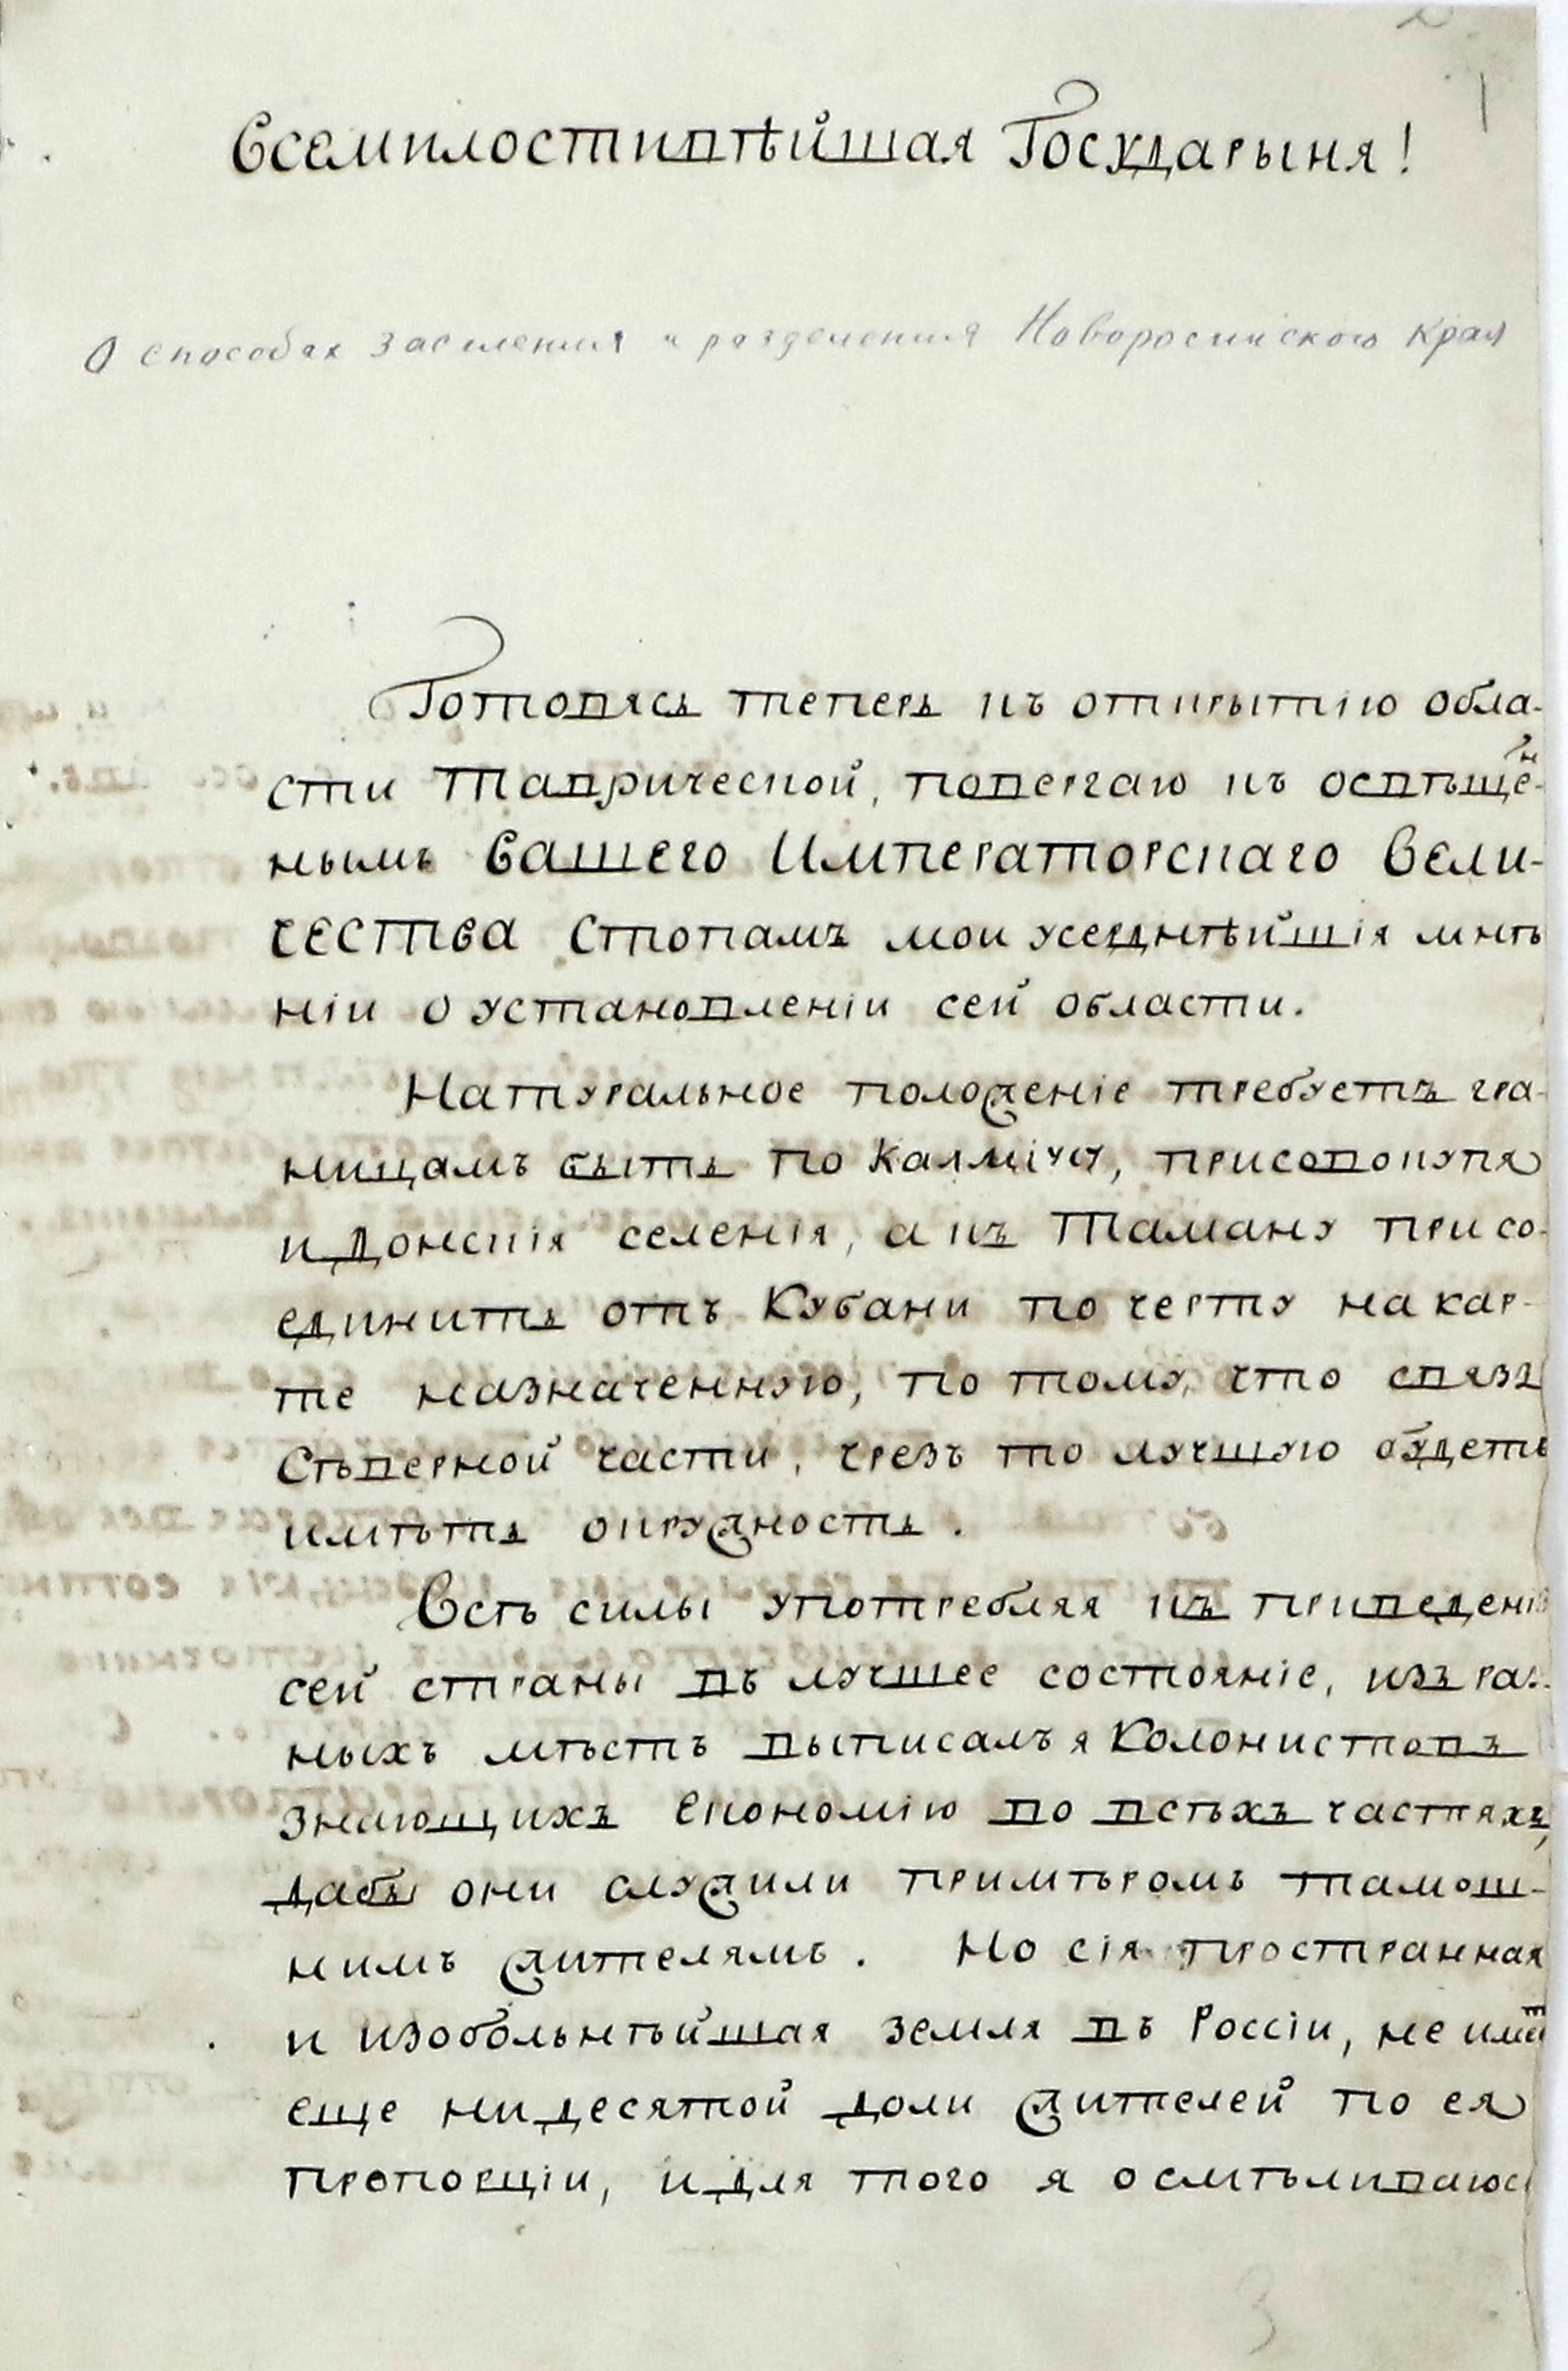 Всемилостивѣйшая Государыня!
О способах заселения и разделения Новоросийского края
Готовясь теперь къ открытію обла-
сти Таврической, повергаю къ освѣщен-
нымъ Вашего Императорскаго Вели-
чества стопамъ мои усерднѣйшія мнѣ
ніи о установленіи сей области.
Натуральное положеніе требуетъ гра-
ницамъ быть по Калміусу, присовокупя
и Донскія селенія, а къ Таману присо-
единить отъ Кубани по черту на кар-
те назначенную, по тому, что связь
Сѣверной части, чрезъ то лучшую будетъ
имѣть окружность.
Всѣ силы употребляя къ приведенію
сей страны въ лучшее состояніе, изъ раз-
ныхъ мѣстъ выписалъ я Колонистовъ
знающихъ економію во всѣхъ частяхъ,
дабы они служили примѣромъ тамош-
нимъ жителямъ. Но сія пространная
и изобольнѣйшая земля въ Россіи, не имѣт
еще ни десятой доли жителей по ея
пропорціи, и для того я осмѣливаюсь
3